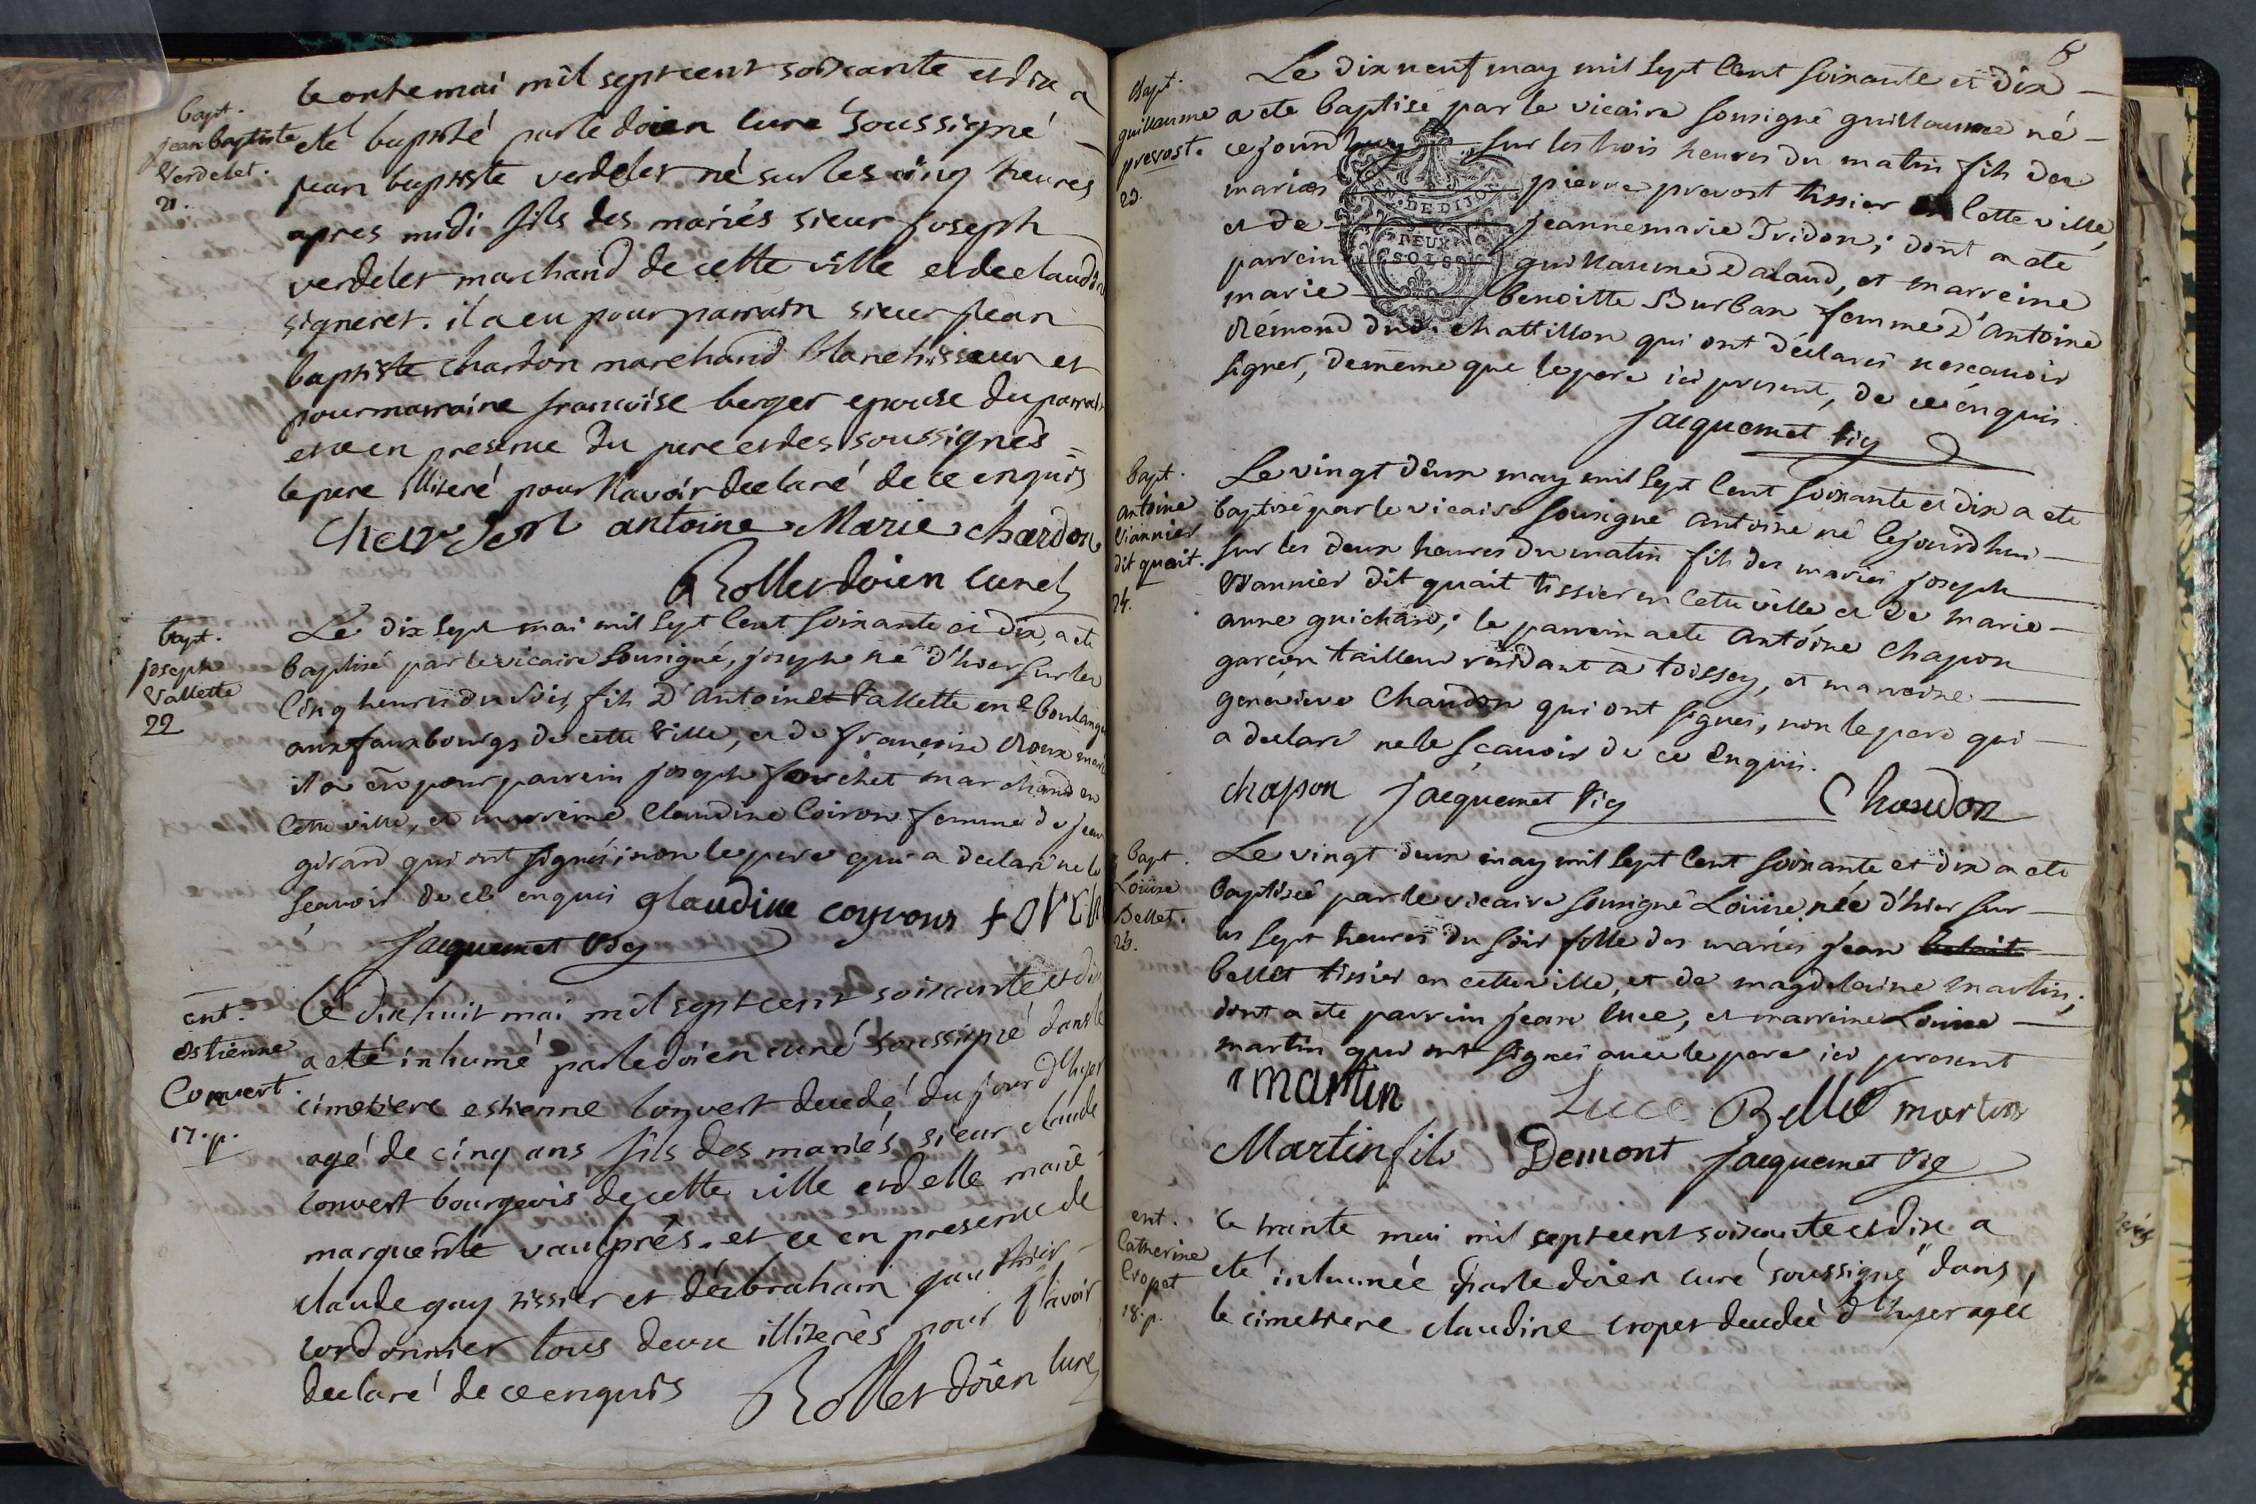 bapt.
jean baptiste
Verdelet.
21.
le onze mai mil sept cent soixante et dix a
eté baptisé par le doien curé soussigné
jean baptiste verdelet né sur les cinq heures
apres midi fils des mariés sieur joseph
verdelet marchand de cette ville et de claudine
signeret. il a eu pour parrain sieur jean
baptiste chardon marchand blanchisseur et
pour marraine francoise berger epouse du parrain
et ce en presence du pere et des soussignés
le pere illiteré pour l'avoir declaré de ce enquis
antoine Marie chardon
Rollet doien curé
bapt.
joseph
Vallette
22
Le dix sept mai mil sept cent soixante et dix, a ete
baptisé par le vicaire sousigné, joseph né d'hier sur les
cinq heures du soir, fils d'antoine Vallette boulanger
aux fauxbourgs de cette ville, et de françoise Roux
il a eu pour parrein joseph fourchet marchand en
cette ville, et marreine claudine Coiron femme de jean
girard qui ont signés; non le pere qui a declaré ne le
sçavoir de ce enquis glaudine coyrons
jacquemet vic
ent.
estienne
Convert.
17.p.
Le dix huit mai mil sept cent soixante et dix
a eté inhumé par le doien curé soussigné dans le
cimetiere estienne convert decedé du jour d'hyer
agé de cinq ans fils des mariés sieur claude
convert bourgeois de cette ville et delle marie
marguerite vauprés. et ce en presence de
claude guy tissier et d'abraham gauthier
cordonnier tous deux illiterés pour l'avoir
declaré de ce enquis Rollet doien curé
8
Bapt.
guillaume
prevost.
23.
Le dix neuf may mil sept cent soixante et dix
a ete baptisé par le vicaire sousigné guillaume né
ce jourd'huy sur les trois heures du matin fils des
mariés pierre prevost tissier en cette ville,
et de jeanne marie Tridon; dont a ete
parrein guillaume Daland, et marreine
marie benoitte Burban femme d'antoine
Rémond dud. chattillon qui ont déclarés ne scavoir
signer, de meme que le pere ici present, de ce enquis.
jacquemet vic
GEN. DE DIJON
DEUX
SOLS
Bapt.
antoine
Viannier
dit quait.
24.
Le vingt deux may mil sept cent soixante et dix a ete
baptisé par le vicaire sousigné antoine né cejourd'hui
sur les deux heures du matin fils des mariés joseph
Viannier dit quait tissier en cette ville et de marie
anne guichard; le parrein a ete antoine chapon
garçon tailleur residant à toissey, et marreine
genevieve Chaudon qui ont signés, non le pere qui
a declaré ne le sçavoir de ce enquis.
chapon jacquemet vic Chaudon
Bapt.
Loüise
Bellet.
25.
Le vingt deux may mil sept cent soixante et dix a ete
baptisée par le vicaire sousigné Loüise née d'hier sur
les sept heures du soir fille des mariés jean
bellet tissier en cette ville, et de magdelaine martin;
dont a ete parrein jean luce, et marreine Loüise
martin qui ont signés avec le pere ici present
martin Luce Bellet martin
Martin fils Demont jacquemet vic
ent.
Catherine
Cropet
18.p.
le trante mai mil sept cent soixante et dix a
eté inhumée par le doien curé soussigné dans
le cimetiere claudine cropet decedée d'hyer agée